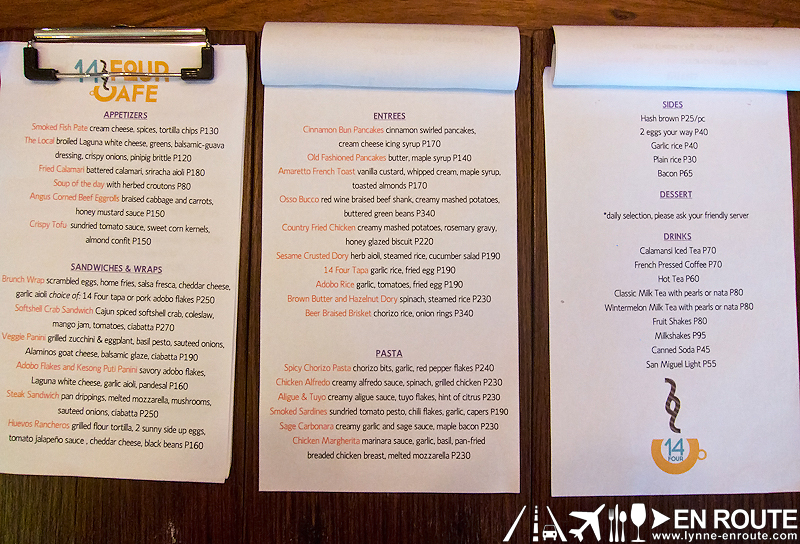 14 FOUR
CAFE
APPETIZERS
Smoked Fish Pate cream cheese, spices, tortilla chips P130
The Local broiled Laguna white cheese, greens, balsamic-guava
dressing, crispy onions, pinipig brittle P120
Fried Calamari battered calamari, sriracha aioli P180
Soup of the day with herbed croutons P80
Angus Corned Beef Eggrolls braised cabbage and carrots,
honey mustard sauce P150
Crispy Tofu sundried tomato sauce, sweet corn kernels,
almond confit P150
SANDWICHES & WRAPS
Brunch Wrap scrambled eggs, home fries, salsa fresca, cheddar cheese,
garlic aioli choice of: 14 Four tapa or pork adobo flakes P250
Softshell Crab Sandwich Cajun spiced softshell crab, coleslaw,
mango jam, tomatoes, ciabatta P270
Veggie Panini grilled zucchini & eggplant, basil pesto, sauteed onions,
Alaminos goat cheese, balsamic glaze, ciabatta P190
Adobo Flakes and Kesong Puti Panini savory adobo flakes,
Laguna white cheese, garlic aioli, pandesal P160
Steak Sandwich pan drippings, melted mozzarella, mushrooms,
sauteed onions, ciabatta P250
Huevos Rancheros grilled flour tortilla, 2 sunny side up eggs,
tomato jalapeño sauce , cheddar cheese, black beans P160
ENTREES
Cinnamon Bun Pancakes cinnamon swirled pancakes,
cream cheese icing syrup P170
Old Fashioned Pancakes butter, maple syrup P140
Amaretto French Toast vanilla custard, whipped cream, maple syrup,
toasted almonds P170
Osso Bucco red wine braised beef shank, creamy mashed potatoes,
buttered green beans P340
Country Fried Chicken creamy mashed potatoes, rosemary gravy,
honey glazed biscuit P220
Sesame Crusted Dory herb aioli, steamed rice, cucumber salad P190
14 Four Tapa garlic rice, fried egg P190
Adobo Rice garlic, tomatoes, fried egg P190
Brown Butter and Hazelnut Dory spinach, steamed rice P230
Beer Braised Brisket chorizo rice, onion rings P340
PASTA
Spicy Chorizo Pasta chorizo bits, garlic, red pepper flakes P240
Chicken Alfredo creamy alfredo sauce, spinach, grilled chicken P230
Aligue & Tuyo creamy aligue sauce, tuyo flakes, hint of citrus P230
Smoked Sardines sundried tomato pesto, chili flakes, garlic, capers P190
Sage Carbonara creamy garlic and sage sauce, maple bacon P230
Chicken Margherita marinara sauce, garlic, basil, pan-fried
breaded chicken breast, melted mozzarella P230
SIDES
Hash brown P25/pc
2 eggs your way P40
Garlic rice P40
Plain rice P30
Bacon P65
DESSERT
*daily selection, please ask your friendly server
DRINKS
Calamansi Iced Tea P70
French Pressed Coffee P70
Hot Tea P60
Classic Milk Tea with pearls or nata P80
Wintermelon Milk Tea with pearls or nata P80
Fruit Shakes P80
Milkshakes P95
Canned Soda P45
San Miguel Light P55
14
FOUR
EN ROUTE
www.lynne-enroute.com